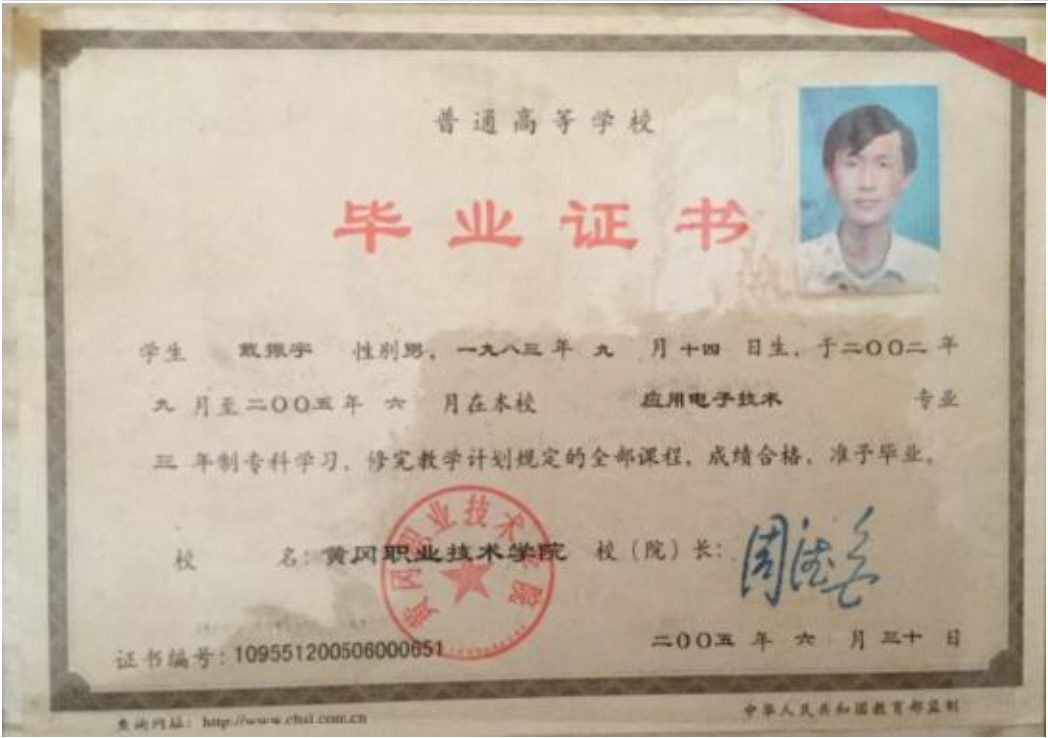 普通高等学校
毕业证书
学生 戴振宇 性别男，一九八三年 九 月十四 日生，于二〇〇二年
九 月至二〇〇五年 六 月在本校 应用电子技术 专业
三 年制专科学习，修完教学计划规定的全部课程，成绩合格，准予毕业。
校 名：黄冈职业技术学院 校（院）长：
黄冈职业技术学院
二〇〇五 年 六 月三十 日
证书编号：109551200506000651
查询网址：http://www.chsi.com.cn
中华人民共和国教育部监制